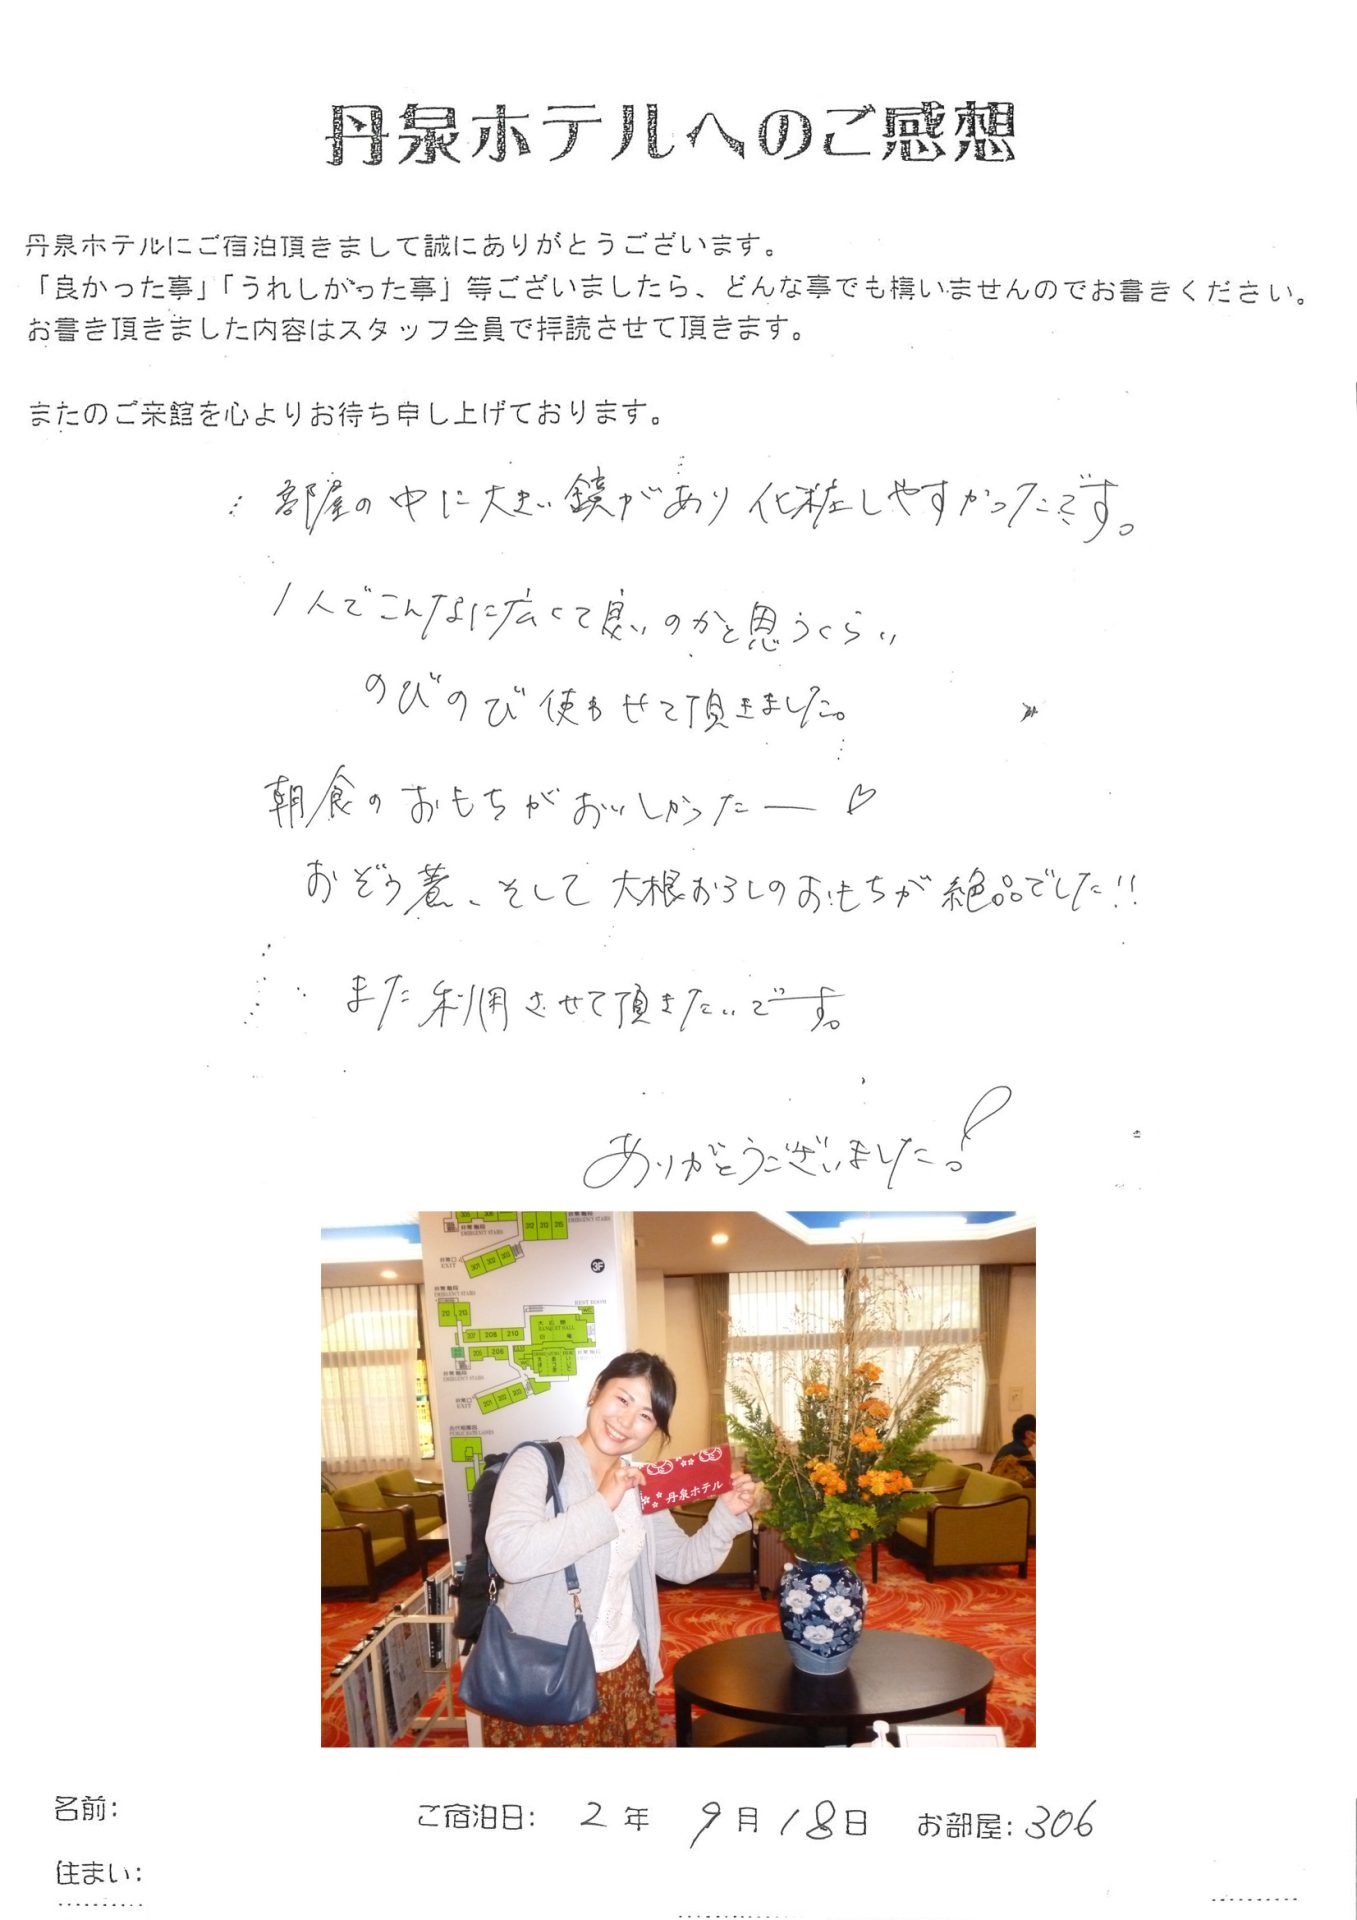 丹泉ホテルへのご感想
丹泉ホテルにご宿泊頂きまして誠にありがとうございます。
「良かった事」「うれしかった事」等ございましたら、どんな事でも構いませんのでお書きください。
お書き頂きました内容はスタッフ全員で拝読させて頂きます。
またのご来館を心よりお待ち申し上げております。
部屋の中に大きい鏡があり化粧しやすかったです。
1人でこんなに広くて良いのかと思うくらい
のびのび使わせて頂きました。
朝食のおもちがおいしかったー♡
おぞう煮、そして大根おろしのおもちが絶品でした!!
また利用させて頂きたいです。
ありがとうございました!
非常階段
EMERGENCY STAIRS
212 213 215
EMERGENCY STAIRS
非常口
EXIT
301 302 303
3F
非常階段
EMERGENCY STAIRS
212 213
REST ROOM
WC
大広間
BANQUET HALL
207 208 210
205 206
非常階段
EMERGENCY STAIRS
非常口
EXIT
201 202 203
丹泉ホテル
名前:
ご宿泊日: 2年 9月18日 お部屋:306
住まい: